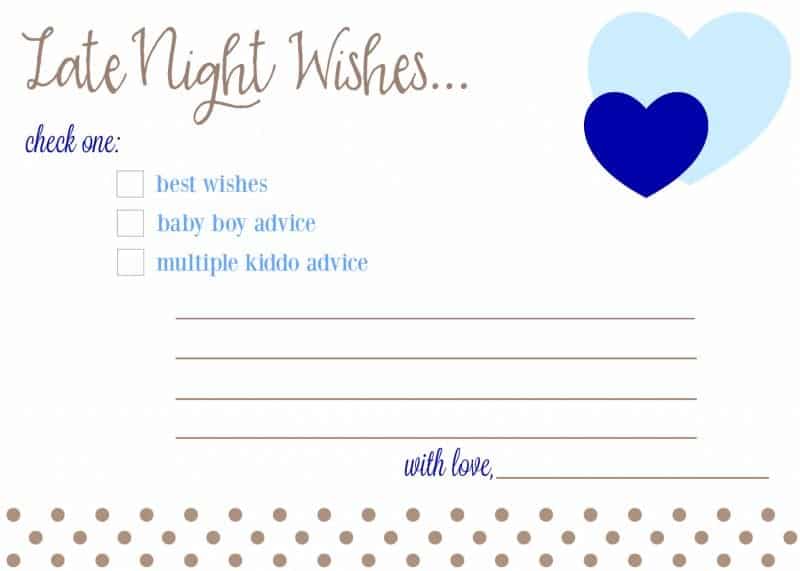 Late Night Wishes...
check one:
best wishes
baby boy advice
multiple kiddo advice
with love,